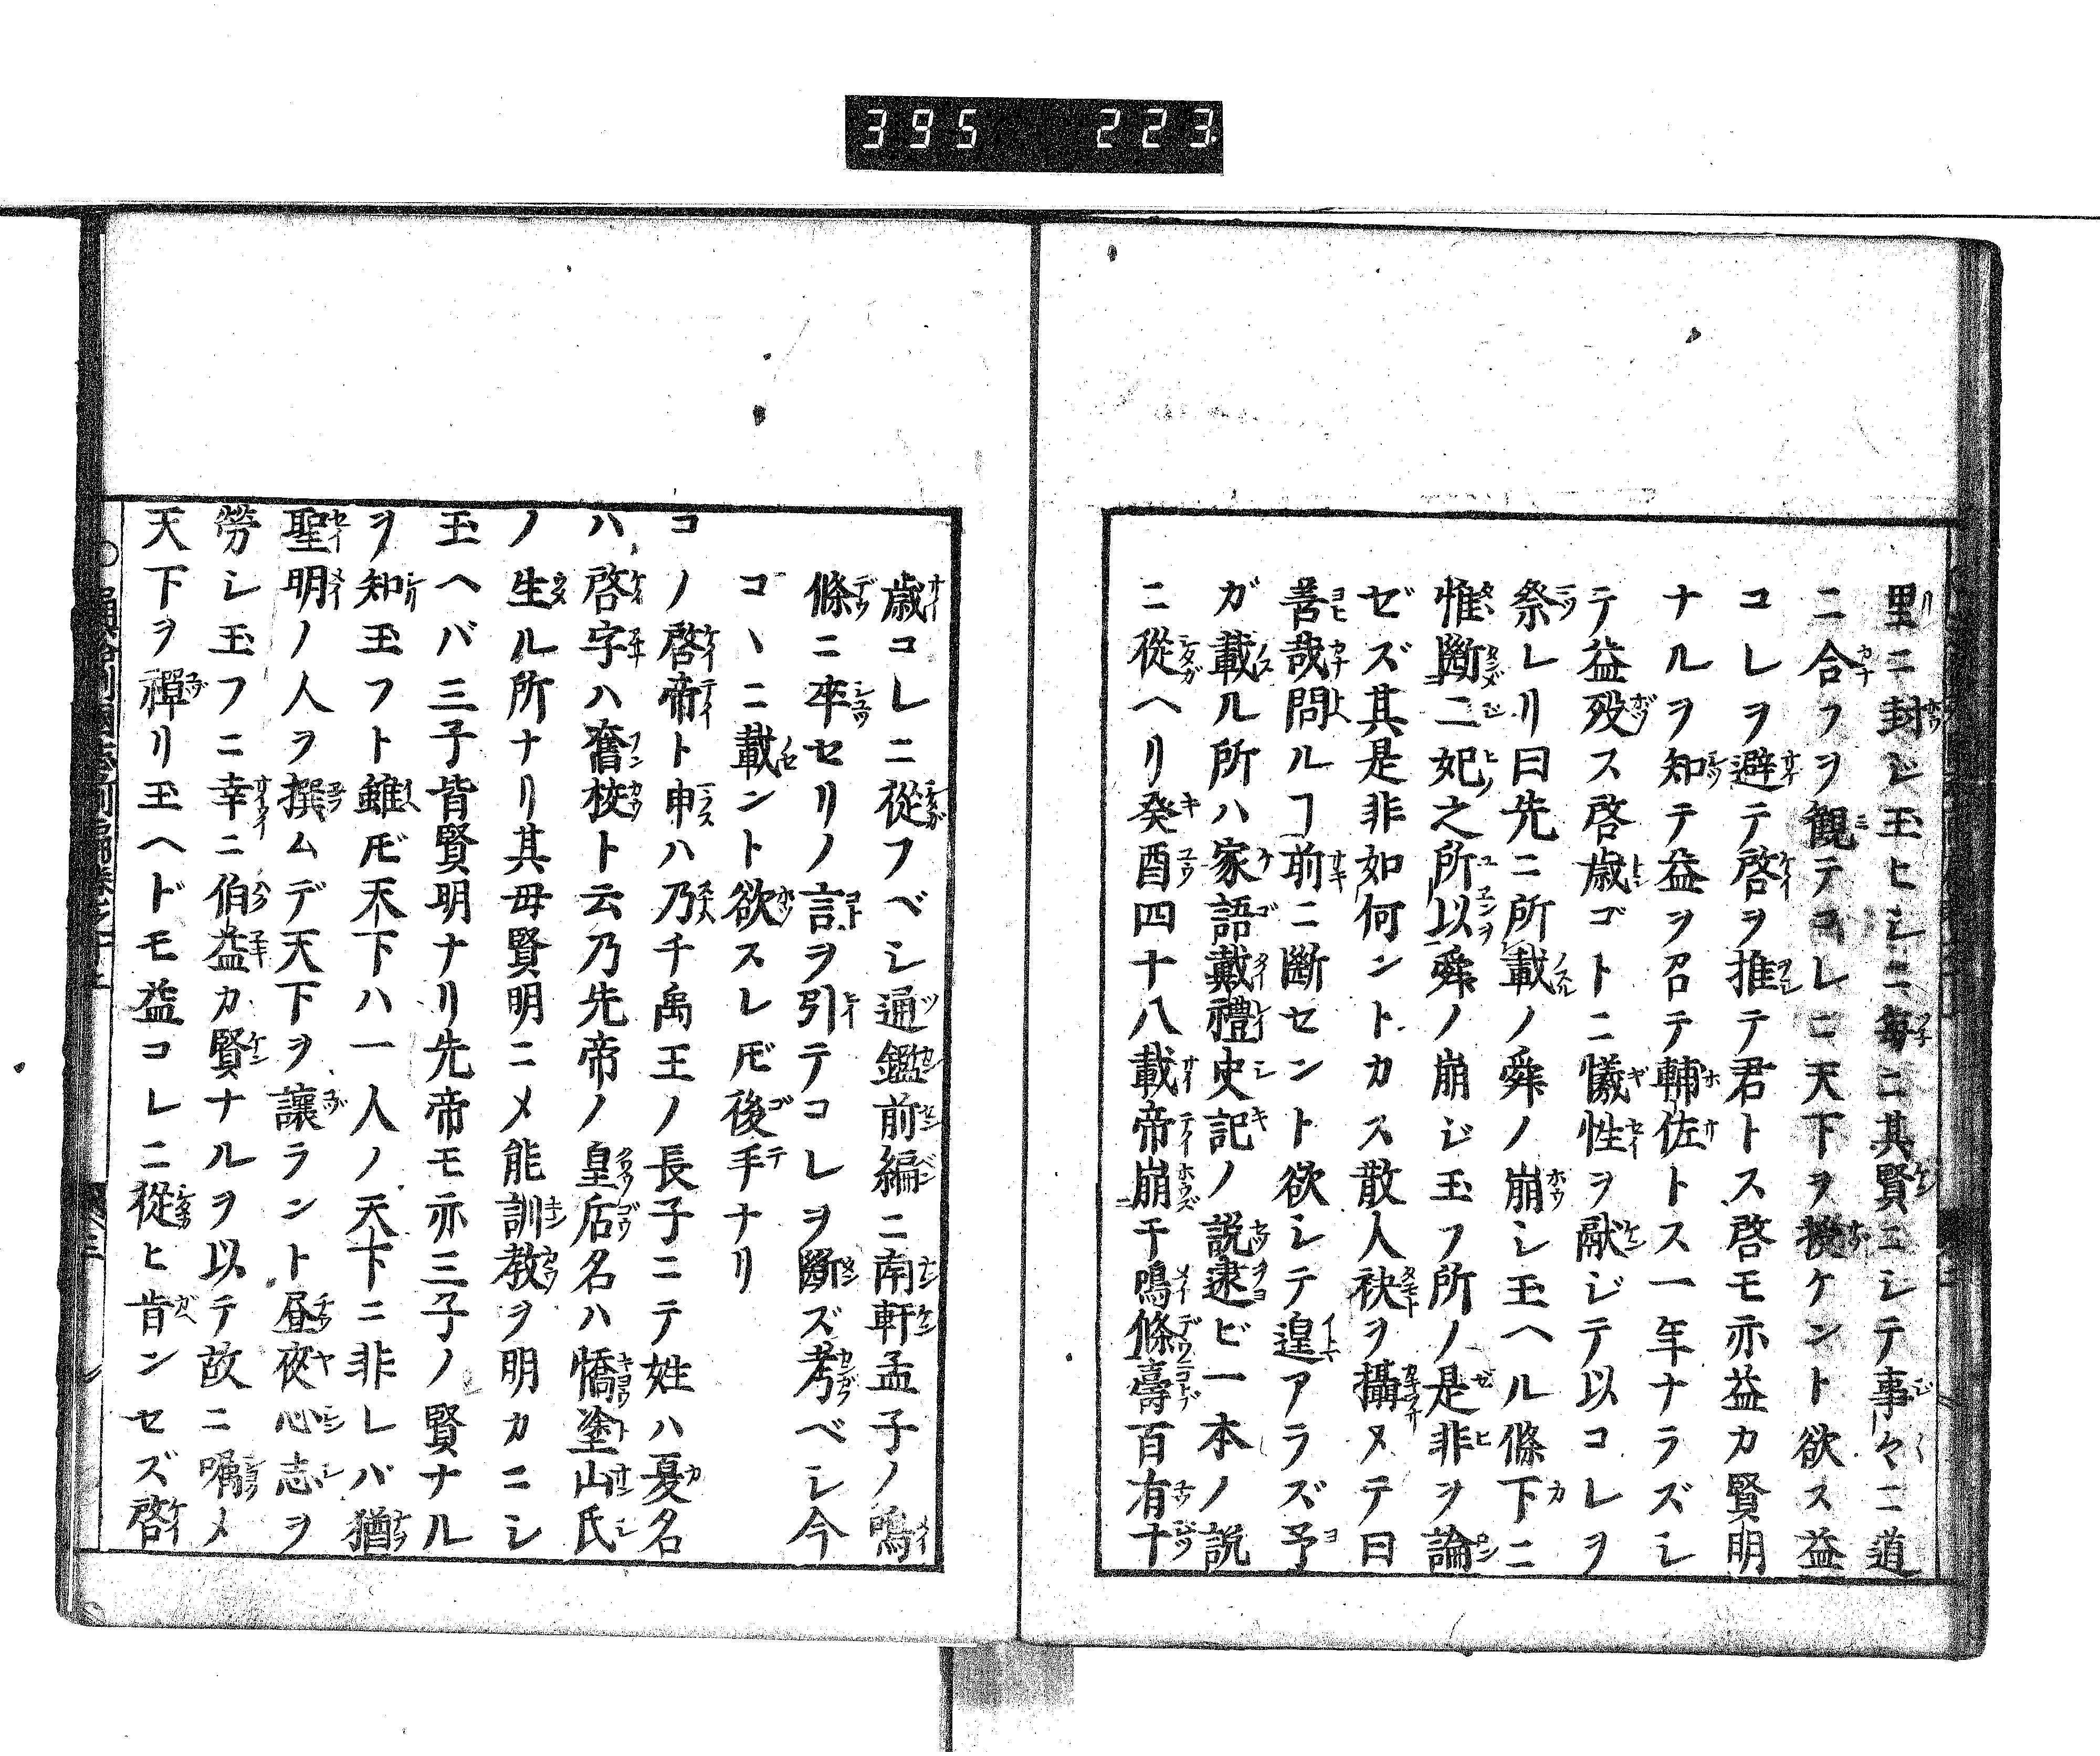 395 223
里ニ封ジ玉ヒシニ毎ニ其賢ニシテ事々ニ道
ニ合フヲ観テコレニ天下ヲ授ケント欲ス益
コレヲ避テ啓ヲ推テ君トス啓モ亦益カ賢明
ナルヲ知テ益ヲ召テ輔佐トス一年ナラズシ
テ益歿ス啓歳ゴトニ犠性ヲ献ジテ以コレヲ
祭レリ曰先ニ所載ノ舜ノ崩シ玉ヘル條下ニ
惟断二妃之所以舜ノ崩ジ玉フ所ノ是非ヲ論
ゼズ其是非如何ントカス散人袂ヲ攝メテ曰
善哉問ルヿ前ニ断セント欲シテ遑アラズ予
ガ載ル所ハ家語戴禮史記ノ説逮ビ一本ノ説
ニ從ヘリ癸酉四十八載帝崩于鳴條壽百有十
歳コレニ從フベシ通鑑前編ニ南軒孟子ノ鳴
條ニ卒セリノ言ヲ引テコレヲ断ズ考ベシ今
コヽニ載ント欲スレ𪜈後手ナリ
コノ啓帝ト申ハ乃チ禹王ノ長子ニテ姓ハ夏名
ハ啓字ハ奮校ト云乃先帝ノ皇后名ハ憍塗山氏
ノ生ル所ナリ其母賢明ニメ能訓教ヲ明カニシ
玉ヘバ三子皆賢明ナリ先帝モ亦三子ノ賢ナル
ヲ知玉フト雖𪜈天下ハ一人ノ天下ニ非レバ猶
聖明ノ人ヲ撰ムデ天下ヲ讓ラント昼夜心志ヲ
勞シ玉フニ幸ニ伯益カ賢ナルヲ以テ故ニ嘱メ
天下ヲ禪リ玉ヘドモ益コレニ從ヒ肯ンセズ啓